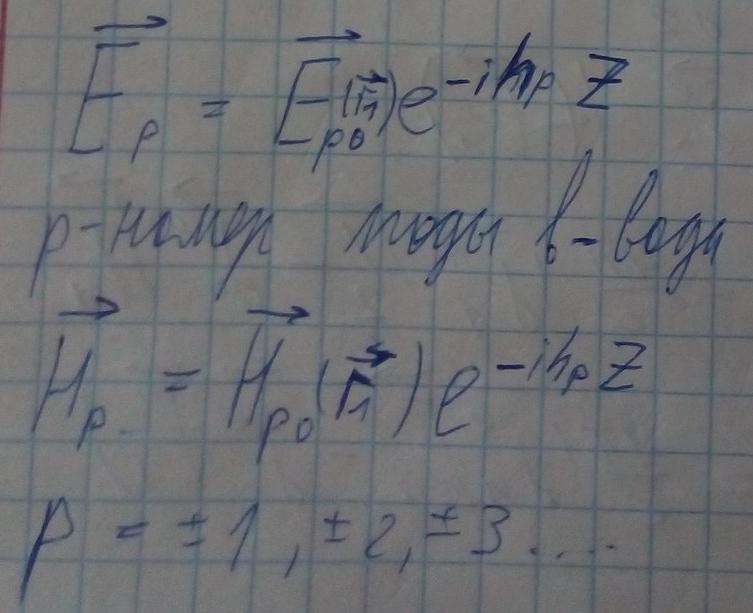 E⃗ₚ = E⃗ₚ₀(r⃗₁)e^(-ihₚz)
p-номер моды в-вода
H⃗ₚ = H⃗ₚ₀(r⃗₁)e^(-ihₚz)
p = ±1, ±2, ±3....